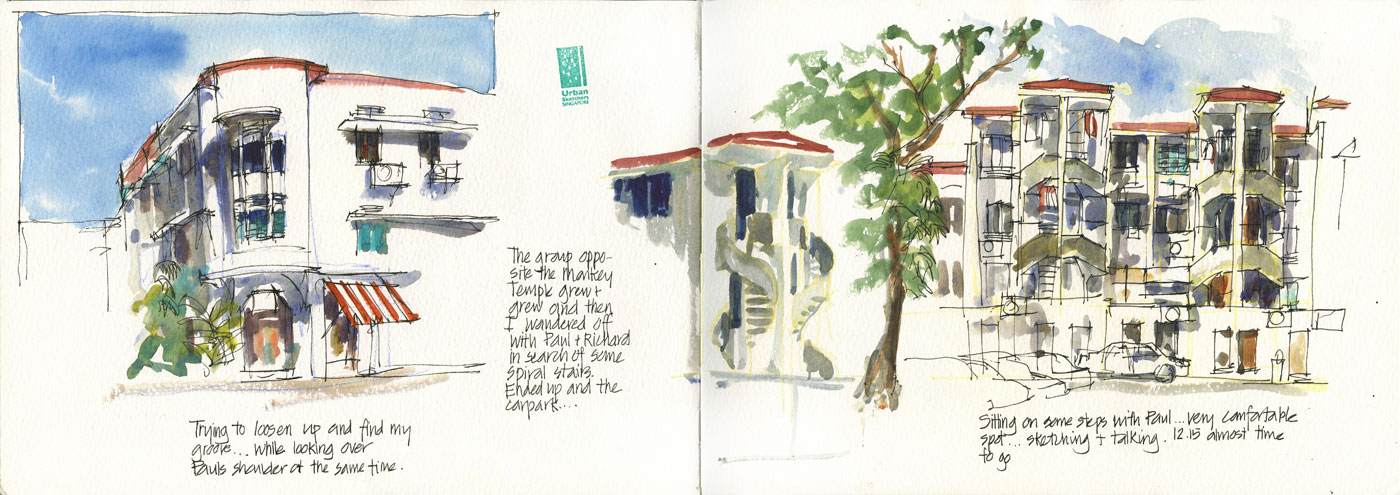 Urban
Sketchers
SINGAPORE
The group oppo-
site the Monkey
Temple grew +
grew and then
I wandered off
with Paul + Richard
in search of some
spiral stairs.
Ended up and the
carpark....
Trying to loosen up and find my
groove... while looking over
Pauls shoulder at the same time.
Sitting on some steps with Paul... very comfortable
spot... sketching + talking. 12.15 almost time
to go